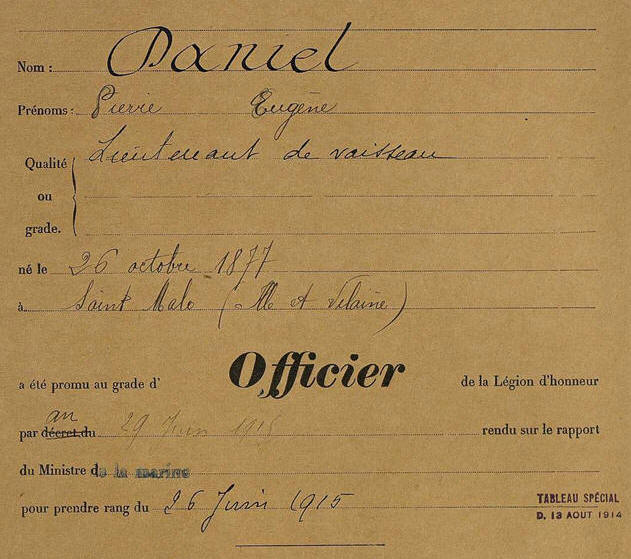 Nom : Daniel
Prénoms : Pierre Eugène
Qualité ou grade. Lieutenant de vaisseau
né le 26 octobre 1877
à Saint Malo (Ille et Vilaine)
a été promu au grade d' Officier de la Légion d'honneur
par décret du an 29 Juin 1915 rendu sur le rapport
du Ministre de la marine
pour prendre rang du 26 Juin 1915
TABLEAU SPÉCIAL
D. 13 AOUT 1914